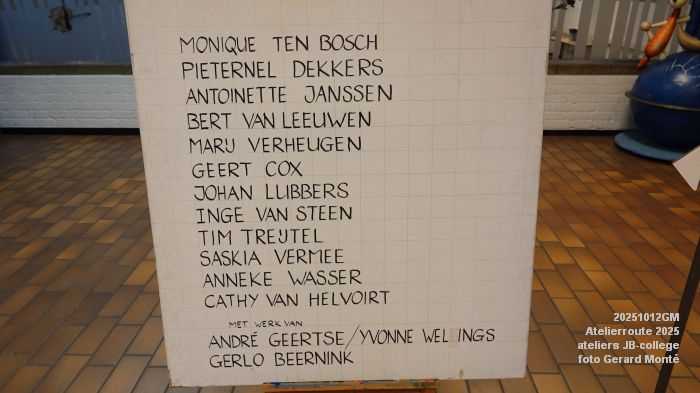 MONIQUE TEN BOSCH
PIETERNEL DEKKERS
ANTOINETTE JANSSEN
BERT VAN LEEUWEN
MARIJ VERHEUGEN
GEERT COX
JOHAN LUBBERS
INGE VAN STEEN
TIM TREIJTEL
SASKIA VERMEE
ANNEKE WASSER
CATHY VAN HELVOIRT
MET WERK VAN
ANDRÉ GEERTSE/YVONNE
GERLO BEERNINK
20251012GM
Atelierroute 2025
ateliers JB-college
foto Gerard Monté